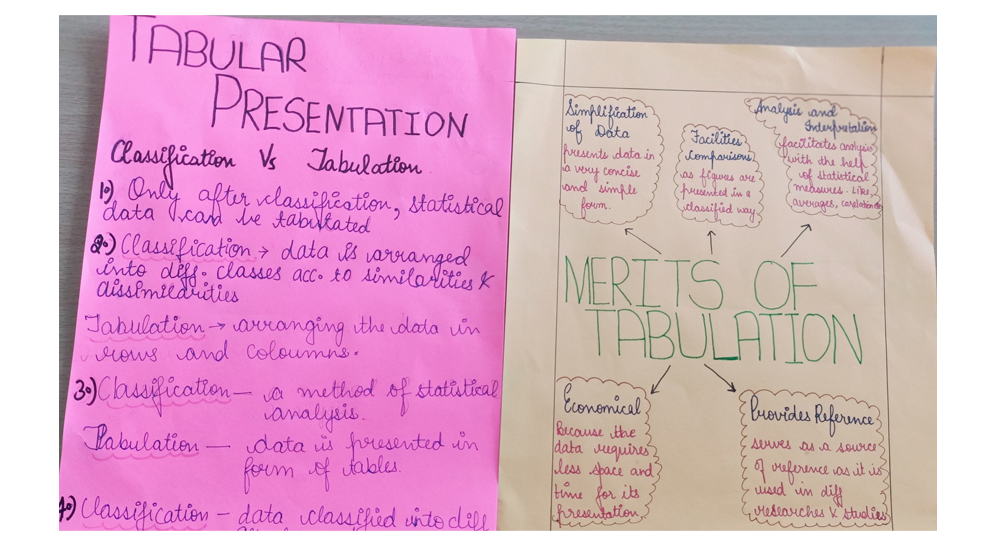 TABULAR
PRESENTATION
Classification Vs Tabulation
1.) Only after classification, statistical
data can be tabultated
2.) Classification → data is arranged
into diff. classes acc. to similarities &
dissimilarities
Tabulation → arranging the data in
rows and coloumns.
3.) Classification — a method of statistical
analysis.
Tabulation — data is presented in
form of tables.
4.) Classification - data classified into diff
Simplification
of Data
presents data in
a very concise
and simple
form.
Facilities
Comparisons
as figures are
presented in a
classified way
Analysis and
Interpretation
facilitates analysis
with the help
of statistical
measures. Like,
averages,
MERITS OF
TABULATION
Economical
Because the
data requires
less space and
time for its
presentation
Provides Reference
serves as a source
of reference as it is
used in diff
researches & studies